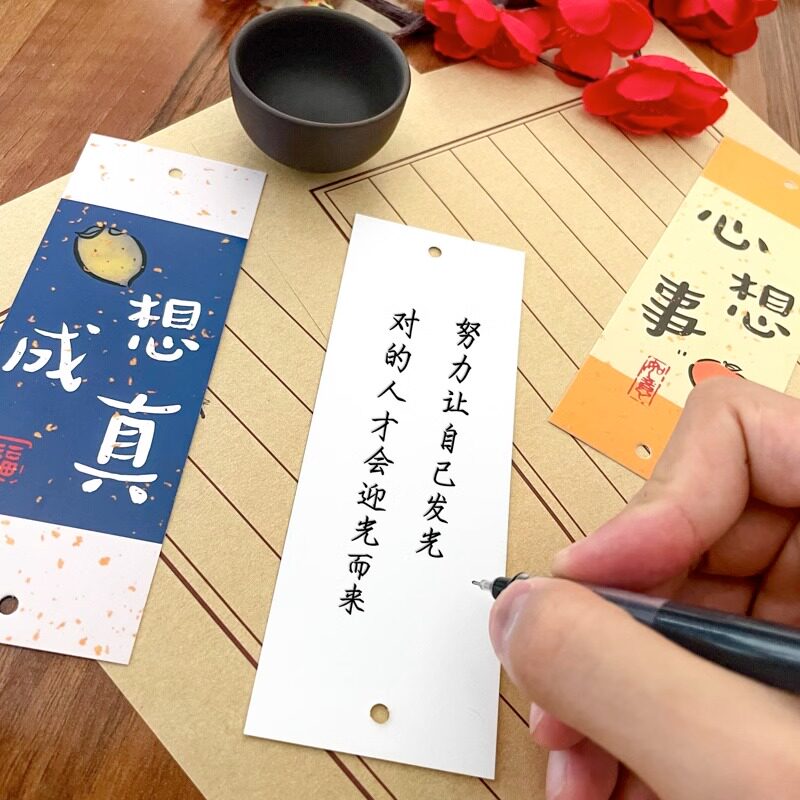 想成真
努力让自己发光
对的人才会迎光而来
心想事